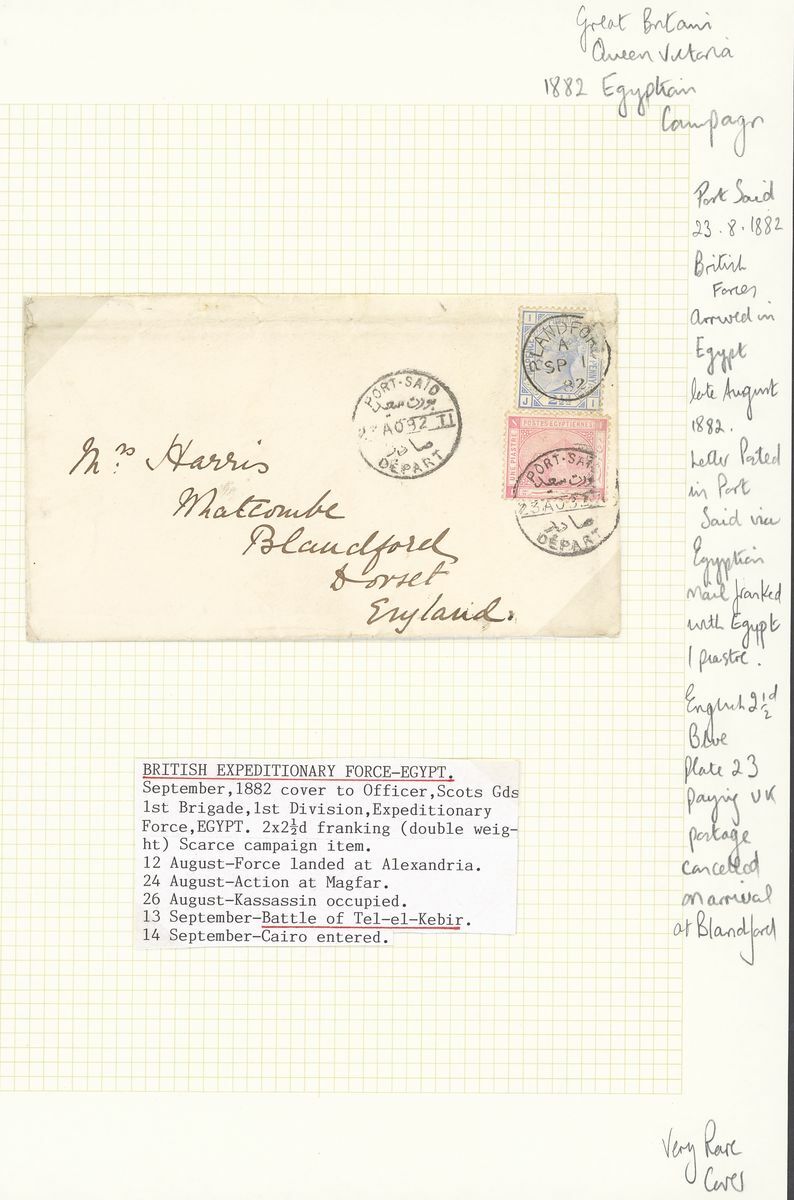 Great Britain
Queen Victoria
1882 Egyptian
Campagn
Port Said
23.8.1882
British
Forces
arrived in
Egypt
late August
1882.
Letter Posted
in Port
Said via
Egyptian
mail franked
with Egypt
1 piastre.
English 2½d
Blue
Plate 23
paying UK
postage
cancelled
on arrival
at Blandford
BLANDFORD
A
SP 1
82
J I
POSTES EGYPTIENNES
UNE PIASTRE
PORT-SAID
بورت سعيد
23 AO 82 T1
صادر
DÉPART
PORT-SAID
بورت سعيد
23 AO 82
صادر
DÉPART
Mrs Harris
Whatcombe
Blandford
Dorset
England.
BRITISH EXPEDITIONARY FORCE-EGYPT.
September,1882 cover to Officer,Scots Gds
1st Brigade,1st Division,Expeditionary
Force,EGYPT. 2x2½d franking (double weig-
ht) Scarce campaign item.
12 August-Force landed at Alexandria.
24 August-Action at Magfar.
26 August-Kassassin occupied.
13 September-Battle of Tel-el-Kebir.
14 September-Cairo entered.
Very Rare
Cover